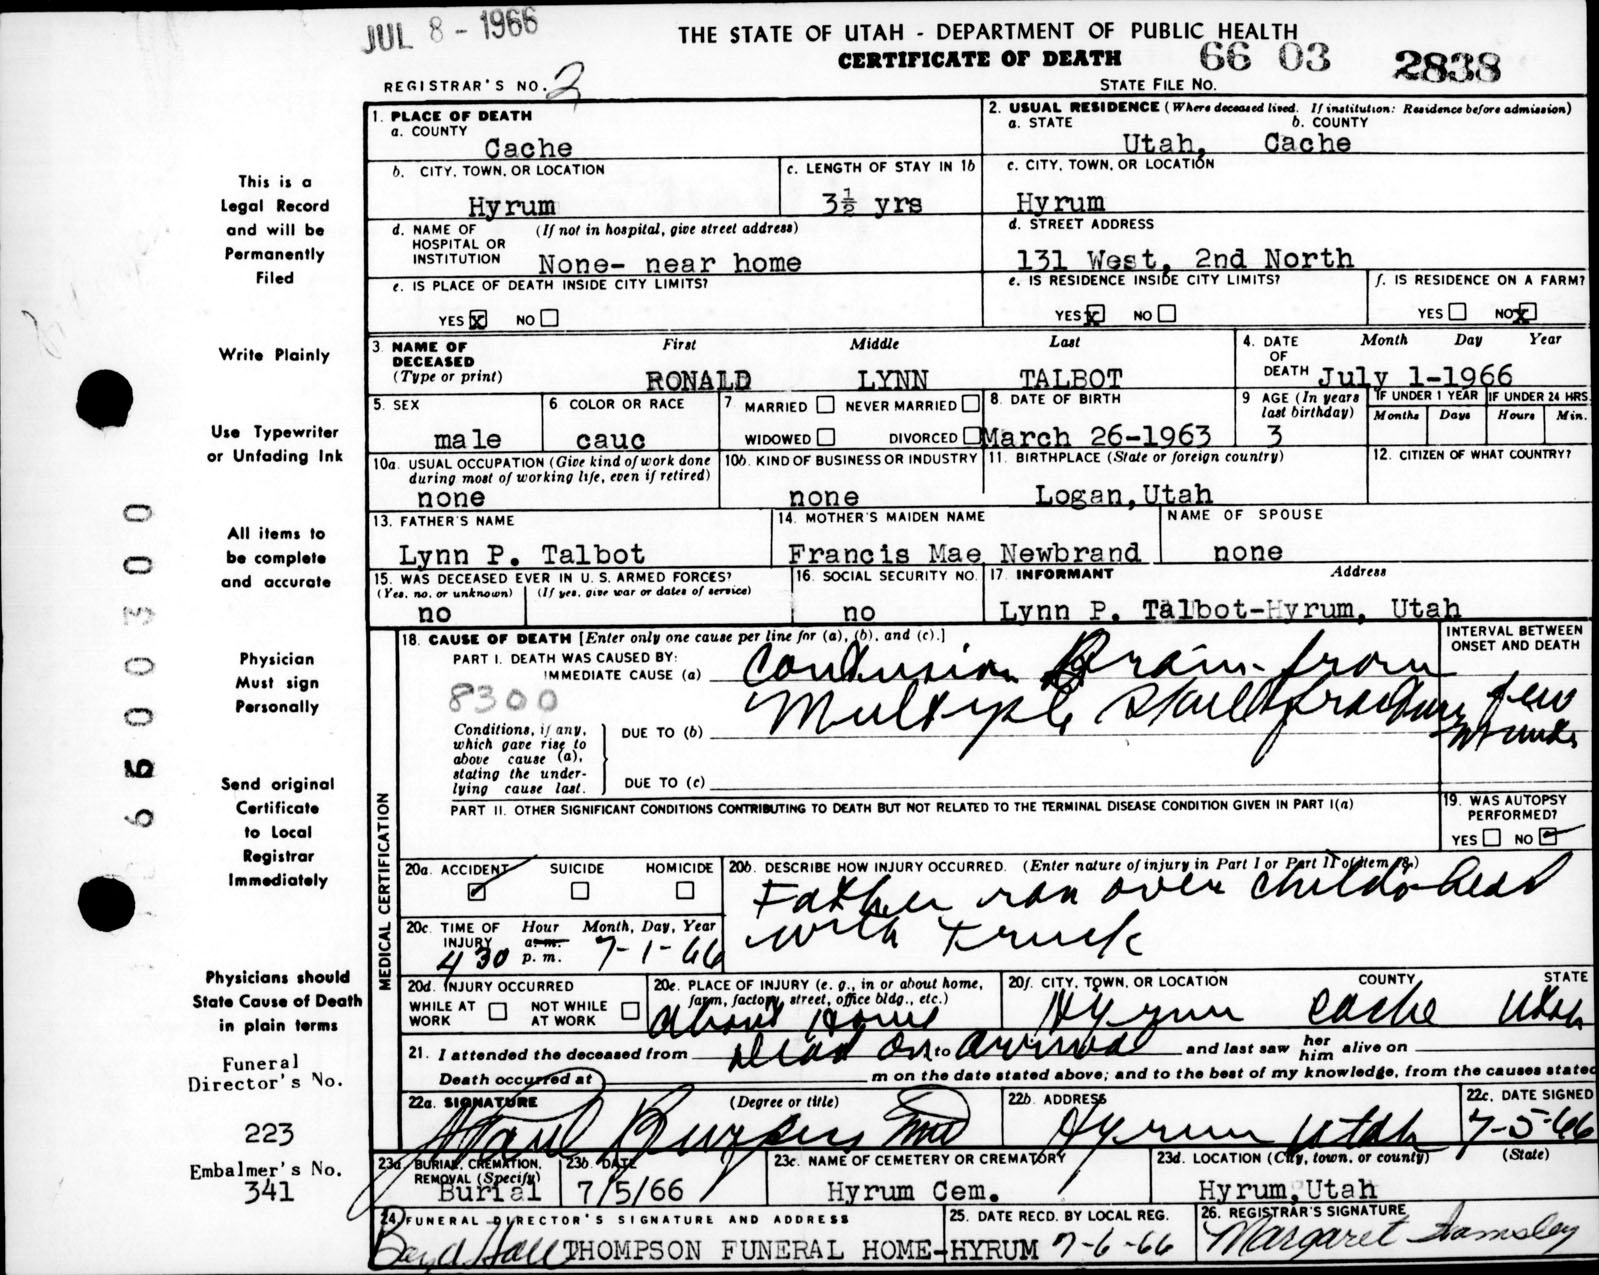 JUL 8 - 1966
THE STATE OF UTAH - DEPARTMENT OF PUBLIC HEALTH
CERTIFICATE OF DEATH 66 03 2838
REGISTRAR'S NO. 2
STATE FILE NO.
This is a
Legal Record
and will be
Permanently
Filed
Write Plainly
Use Typewriter
or Unfading Ink
All items to
be complete
and accurate
Physician
Must sign
Personally
Send original
Certificate
to Local
Registrar
Immediately
Physicians should
State Cause of Death
in plain terms
Funeral
Director's No.
223
Embalmer's No.
341
1. PLACE OF DEATH
a. COUNTY
Cache
2. USUAL RESIDENCE (Where deceased lived. If institution: Residence before admission)
a. STATE b. COUNTY
Utah, Cache
b. CITY, TOWN, OR LOCATION
Hyrum
c. LENGTH OF STAY IN 1b
3½ yrs
c. CITY, TOWN, OR LOCATION
Hyrum
d. NAME OF (If not in hospital, give street address)
HOSPITAL OR
INSTITUTION None- near home
d. STREET ADDRESS
131 West, 2nd North
e. IS PLACE OF DEATH INSIDE CITY LIMITS?
YES X NO
e. IS RESIDENCE INSIDE CITY LIMITS?
YES X NO
f. IS RESIDENCE ON A FARM?
YES NO X
3. NAME OF First Middle Last
DECEASED
(Type or print) RONALD LYNN TALBOT
4. DATE Month Day Year
OF
DEATH July 1-1966
5. SEX
male
6 COLOR OR RACE
cauc
7 MARRIED NEVER MARRIED
WIDOWED DIVORCED
8. DATE OF BIRTH
March 26-1963
9 AGE (In years
last birthday)
3
IF UNDER 1 YEAR IF UNDER 24 HRS.
Months Days Hours Min.
10a. USUAL OCCUPATION (Give kind of work done
during most of working life, even if retired)
none
10b. KIND OF BUSINESS OR INDUSTRY
none
11. BIRTHPLACE (State or foreign country)
Logan, Utah
12. CITIZEN OF WHAT COUNTRY?
13. FATHER'S NAME
Lynn P. Talbot
14. MOTHER'S MAIDEN NAME
Francis Mae Newbrand
NAME OF SPOUSE
none
15. WAS DECEASED EVER IN U. S. ARMED FORCES?
(Yes, no, or unknown) (If yes, give war or dates of service)
no
16. SOCIAL SECURITY NO.
no
17. INFORMANT Address
Lynn P. Talbot-Hyrum, Utah
MEDICAL CERTIFICATION
18. CAUSE OF DEATH [Enter only one cause per line for (a), (b), and (c).]
INTERVAL BETWEEN
ONSET AND DEATH
PART I. DEATH WAS CAUSED BY:
IMMEDIATE CAUSE (a) Contusion Brain from
8300
Multiple Skull fractures few
minutes
Conditions, if any,
which gave rise to
above cause (a),
stating the under-
lying cause last.
DUE TO (b)
DUE TO (c)
PART II. OTHER SIGNIFICANT CONDITIONS CONTRIBUTING TO DEATH BUT NOT RELATED TO THE TERMINAL DISEASE CONDITION GIVEN IN PART I(a)
19. WAS AUTOPSY
PERFORMED?
YES NO
20a. ACCIDENT SUICIDE HOMICIDE
20b. DESCRIBE HOW INJURY OCCURRED. (Enter nature of injury in Part I or Part II of item 18.)
Father ran over childs head
with truck
20c. TIME OF Hour Month, Day, Year
INJURY a.m.
4 30 p. m. 7-1-66
20d. INJURY OCCURRED
WHILE AT WORK NOT WHILE AT WORK
20e. PLACE OF INJURY (e. g., in or about home,
farm, factory, street, office bldg., etc.)
about Home
20f. CITY, TOWN, OR LOCATION COUNTY STATE
Hyrum Cache Utah
21. I attended the deceased from Dead on to arrival and last saw her him alive on
Death occurred at m on the date stated above; and to the best of my knowledge, from the causes stated
22a. SIGNATURE (Degree or title)
Burgess MD
22b. ADDRESS
Hyrum Utah
22c. DATE SIGNED
7-5-66
23a BURIAL, CREMATION,
REMOVAL (Specify)
Burial
23b. DATE
7/5/66
23c. NAME OF CEMETERY OR CREMATORY
Hyrum Cem.
23d. LOCATION (City, town, or county) (State)
Hyrum, Utah
24 FUNERAL DIRECTOR'S SIGNATURE AND ADDRESS
Boyd Hall THOMPSON FUNERAL HOME-HYRUM
25. DATE RECD. BY LOCAL REG.
7-6-66
26. REGISTRAR'S SIGNATURE
Margaret
6 5 0 0 3 0 0